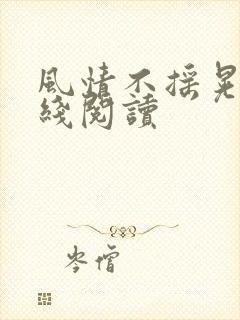 風情不採晃
綫閱讀
岑僧